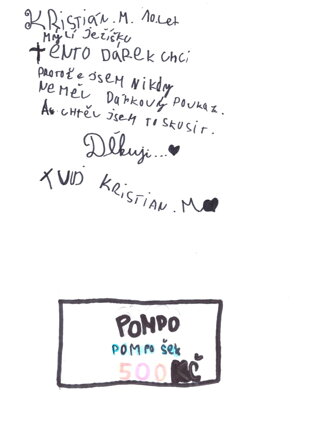 KRISTIÁN. M. 10 let
Milí ježíšku
TENTO DÁREK CHCI
PROTOŽE JSEM NIKDY
NEMĚL DÁRKOVÝ POUKAZ.
A CHTĚL JSEM TO SKUSIT.
Děkuji...
TVŮJ KRISTIÁN. M
POMPO
POMPO šek
500 KČ